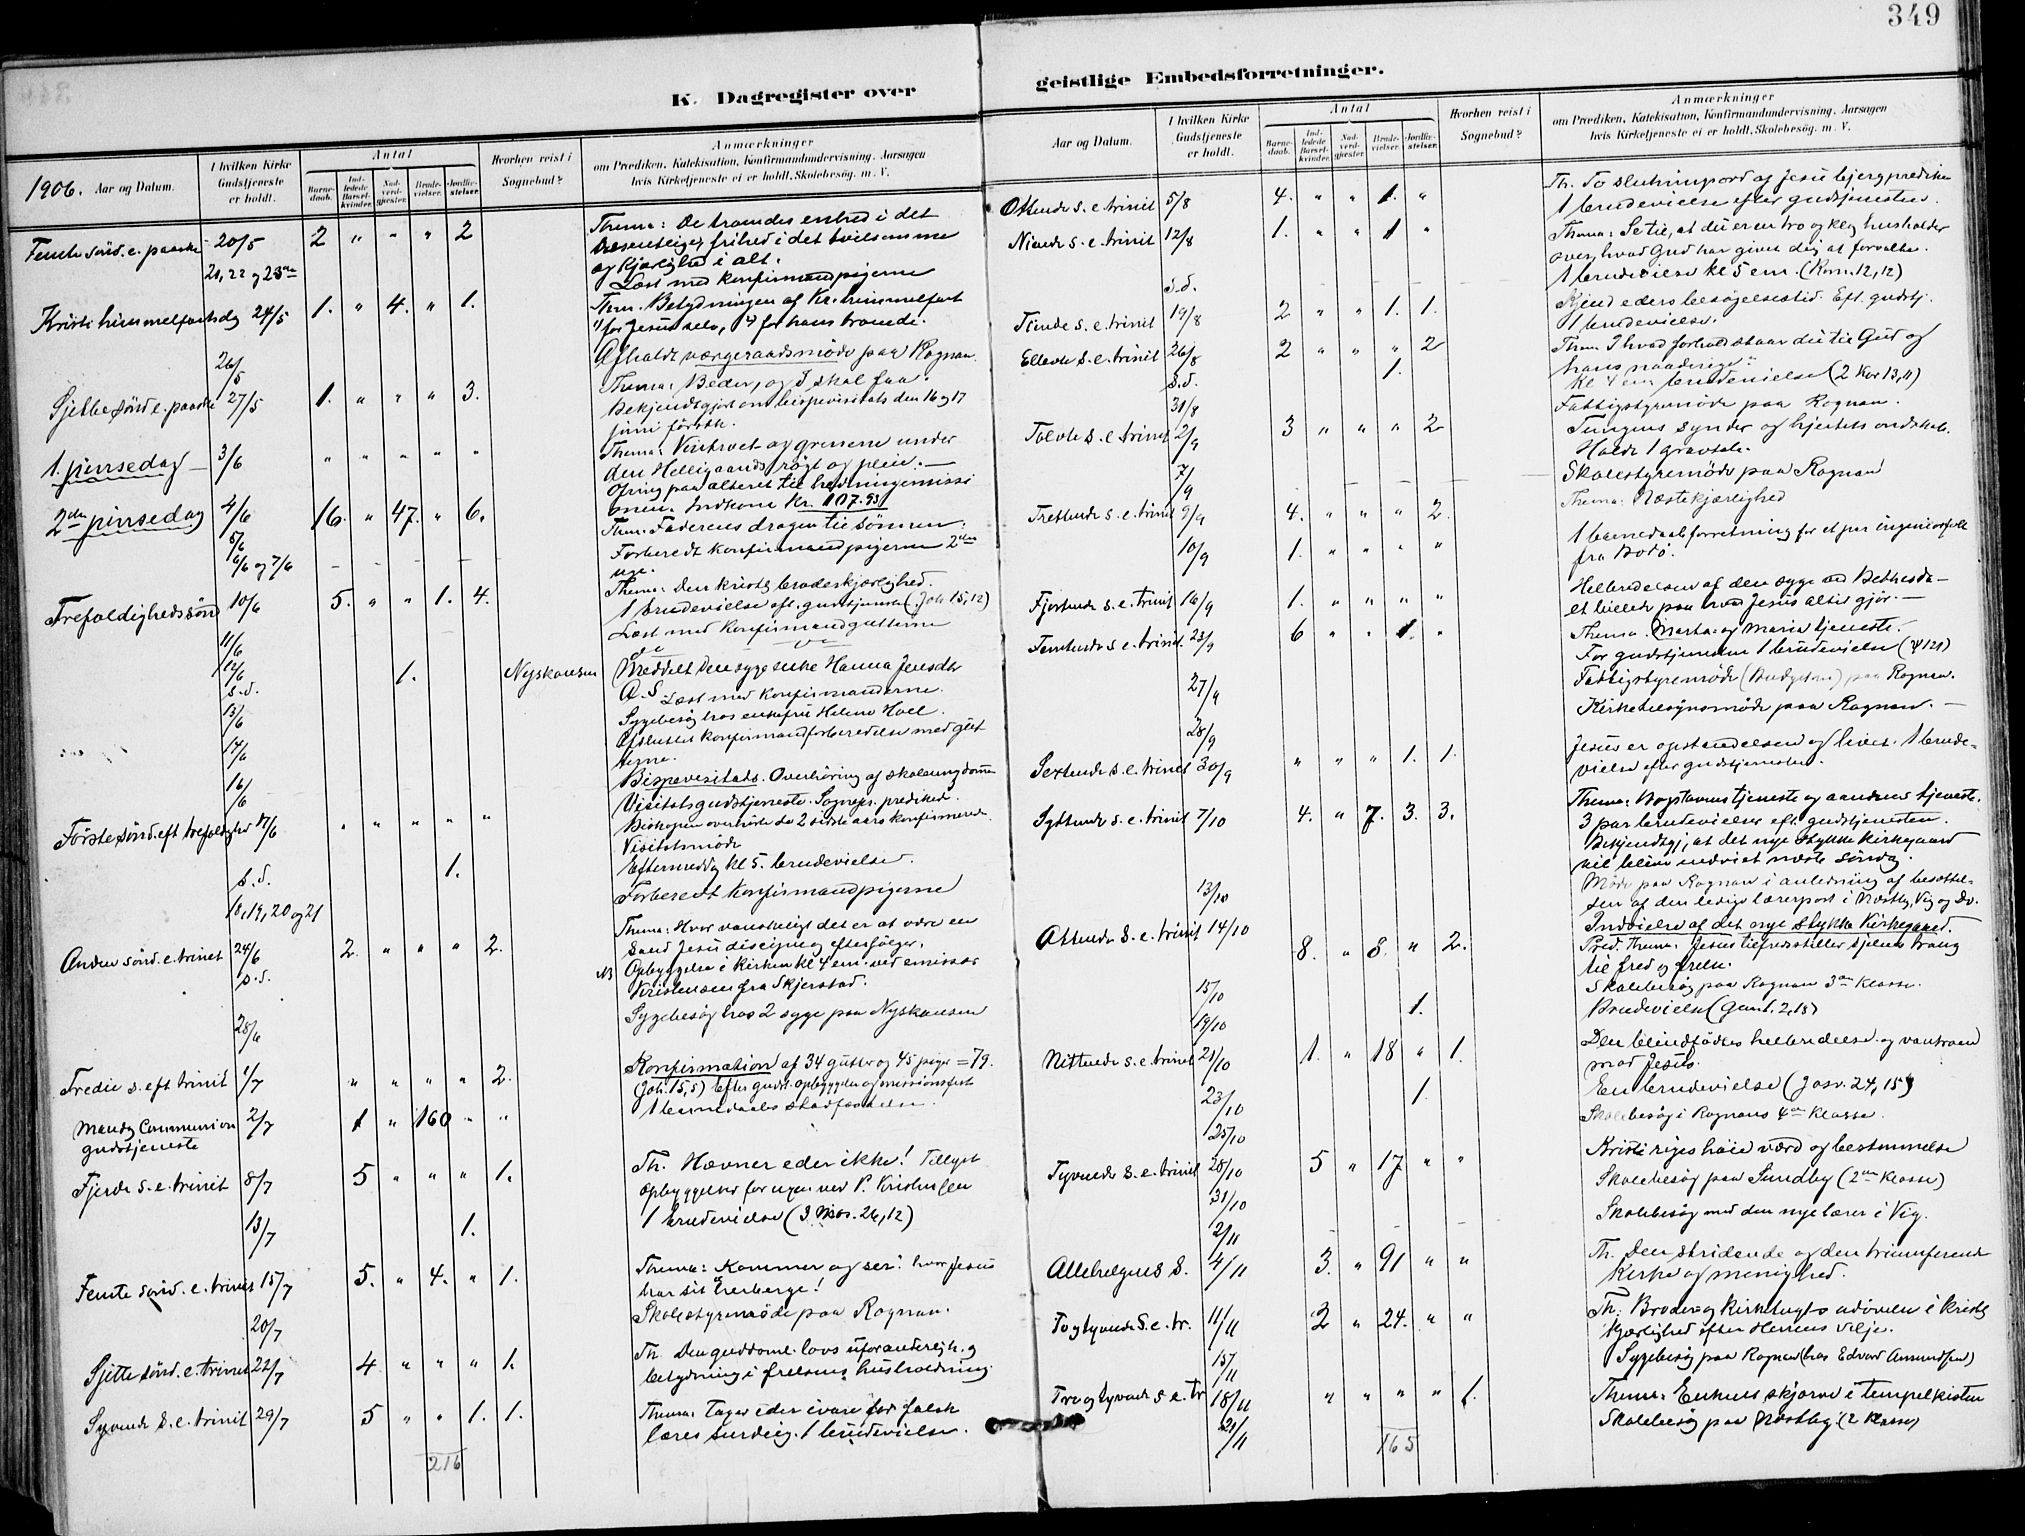 349
K. Dagregister over
geistlige Embedsforretninger.
1906. Aar og Datum.
I hvilken Kirke Gudstjeneste er holdt.
Antal
Barnedaab.
Indledede Barselkvinder.
Nadverdgjester.
Brudevielser.
Jordfæstelser.
Hvorhen reist i Sognebud?
Anmærkninger
om Prædiken, Katekisation, Konfirmandundervisning, Aarsagen
hvis Kirketjeneste ei er holdt, Skolebesög. m. V.
Femte sönd. e. paaske 20/5 2 " " " 2 Thema: De troendes enhed i det
væsentlige, frihed i det tvilsomme
og kjærlighed i alt.
21, 22 og 23de Læst med konfirmandpigerne
Kristi himmelfartsdag 24/5 1. " 4. " 1. Them. Betydningen af Kr. himmelfart
for Jesus selv, for hans troende.
26/5 Afholdt værgeraadsmöde paa Rognan.
Sjette sönd e. paaske 27/5 1. " " " 3. Thema: Beder, og I skal faa.
Bekjendtgjort om bispevisitats den 16 og 17
juni
1. pinsedag 3/6 " " " " " Thema: Vintræet og grenene under
den Helligaands røgt og pleie. —
Ofring paa alteret til hedningemissi
onen. Indkom Kr. 107.93
2den pinsedag 4/6 16. " 47. " 6. Them. Faderens dragen til sönnen.
5/6 6/6 og 7/6 Forberedt konfirmandpigerne 2den
uge.
Trefoldighedssönd 10/6 5. " " 1. 4. Thema: Den kristelig broderkjærlighed.
1 brudevielse eft. gudstjeneste (Joh 15,12)
11/6 Læst med konfirmandgutterne
12/6 1. Nyskausen Meddelt den syge enke Hanna Jensdtr
A. S.
s.d. Læst med konfirmanderne.
13/6 Sygebesög hos enkefru Helene Hoel.
14/6 Afsluttet konfirmandforberedelse med gut
terne.
16/6 Bispevisitats. Overhöring af skoleungdommen
Förstesönd. eft trefoldighed 17/6 " " " " " Visitatsgudstjeneste. Sognepr. prediked.
Biskopen overhörte de 2 sidste aars konfirmerede.
Visitatsmöde
s.d. 1. Eftermiddag kl 5. brudevielse.
18, 19, 20 og 21 Forberedt konfirmandpigerne
Anden sönd. e. trinit 24/6 2. " " " 2. Thema: Hvor vanskeligt det er at være en
sand Jesu discipel og efterfölger.
s.d. NB Opbyggelse i kirken kl 4 em. ved emissær
Kristensen fra Skjerstad.
28/6 Sygebesög hos 2 syge paa Nyskausen
Tredie s. eft trinit 1/7 " " " " 2. Konfirmation af 34 gutter og 45 piger = 79.
(Joh. 15,5) Efter gudst. opbyggelse og missionsfest
Mandag Communion 2/7 1 " 160 " " 1 barnedaabs stadfæstelse.
gudstjeneste
Fjerde s. e. trinit 8/7 5 " " " 1. Th. Hævner eder ikke! Tillyst
opbyggelser for ugen ved P. Kristensen
13/7 1. 1 brudevielse (3 Mos. 26,12)
Femte sönd. e. trinit 15/7 5. " 4. " 1. Thema: Kommer og ser! hvor Jesus
har sit herberge!
20/7 Skolestyremöde paa Rognan.
Sjette sönd. e. trinit 22/7 4 " " " 1. Th. Den guddomel. lovs uforanderligh. og
betydning i frelsens husholdning.
Syvende s. e. trinit 29/7 5 " " 1. 1. Thema: Tager eder ivare for falsk
læres surdeig. 1 brudevielse.
216
Aar og Datum.
I hvilken Kirke Gudstjeneste er holdt.
Antal
Barnedaab.
Indledede Barselkvinder.
Nadverdgjester.
Brudevielser.
Jordfæstelser.
Hvorhen reist i Sognebud?
Anmærkninger
om Prædiken, Katekisation, Konfirmandundervisning, Aarsagen
hvis Kirketjeneste ei er holdt, Skolebesög. m. V.
Ottende s. e. trinit 5/8 4. " " 1. " Th. To slutningsord af Jesu bjergprediken
1 brudevielse efter gudstjenesten.
Niende s. e. trinit 12/8 1. " " 1 " Thema: Se til, at du er en tro og klog husholder
over, hvad Gud har given dig at forvalte.
s.d. 1 brudevielse kl 5 em. (Rom. 12,12)
Tiende s. e. trinit 19/8 2 " " 1. 1. Kjend eders besøgelsestid. Eft. gudstj.
1 brudevielse.
Ellevte s. e. trinit 26/8 2 " " " 2 Them. I hvad forhold staar du til Gud og
hans naaderige"
s.d. 1. kl 4 em brudevielse (2 Kor 13,11)
31/8 Fattigstyremöde paa Rognan.
Tolvte s. e trinit 2/9 3 " " " 2 Tungens synder og hjertets ondskab.
Holdt 1 gravtale.
7/9 Skolestyremöde paa Rognan
Trettende s. e. trinit 9/9 4. " " " 2. Thema: Næstekjærlighed
10/9 1. " " " " 1 barnedaabsforretning for et par ingeniørfolk
fra Bodö.
Fjortende s. e. trinit 16/9 1. " " " " Helbredelsen af den syge ved Bethesda —
et billede paa hvad Jesus altid gjör. —
Femtende s. e. trinit. 23/9 6 " " 1. " Thema. Martas og Marias tjeneste.
For gudstjenesten 1 brudevielse (ψ 121)
27/9 Fattigstyremöde (Budgettm) paa Rognan.
28/9 Kirketilsynsmöde paa Rognan. —
Sextende s. e. trinit 30/9 " " " 1. 1. Jesus er opstandelsen og livet. 1 brude-
vielse efter gudstjenesten.
Syttende s. e. trinit 7/10 4. " 7. 3. 3. Thema: Bogstavens tjeneste og aandens tjeneste.
3 par brudevielser eft. gudstjenesten.
Bekjendtgj, at det nye stykke kirkegaard
vil blive indviet næste söndag.
13/10 Möde paa Rognan i anledning af besættel-
sen af den ledige lærerpost i Næstby, Vig og
Attende s. e. trinit 14/10 8. " 8. " 2. Indvielse af det nye stykke kirkegaard.
Pred. Thema: Jesus tilfredsstiller sjelens trang
til fred og frelse.
15/10 Skolebesög paa Rognan 3die klasse.
19/10 1. Brudevielse
Nittende s. e. trinit 21/10 1. " 18 " 1. Den blindfödtes helbredelse og vantroen
mod Jesus.
23/10 1. En brudevielse (Josv. 24,15)
25/10 Skolebesög i Rognans 4de klasse.
Tyvende s. e. trinit 28/10 5 " 17. " " Kristi riges höie værd og bestemmelse
31/10 Skolebesög paa Sundby (2den klasse)
2/11 Skolebesög med den nye lærer i Vig.
Allehelgens S. 4/11 3. " 91 " " Th. Den stridende og den triumferende
kirke og menighed.
To og tyvende S. e. tr. 11/11 2 " 24. " " Th: Broder og kirketugts udövelse i kristelig
kjærlighed efter Herrens vilje.
15/11 Sygebesög paa Rognan (hos Edvard Amundsen)
Tre og tyvende s e. tr 18/11 " " " " 1. Thema: Enkens skjærv i tempelkisten
21/11 Skolebesög paa Næstby (2 klasser)
165